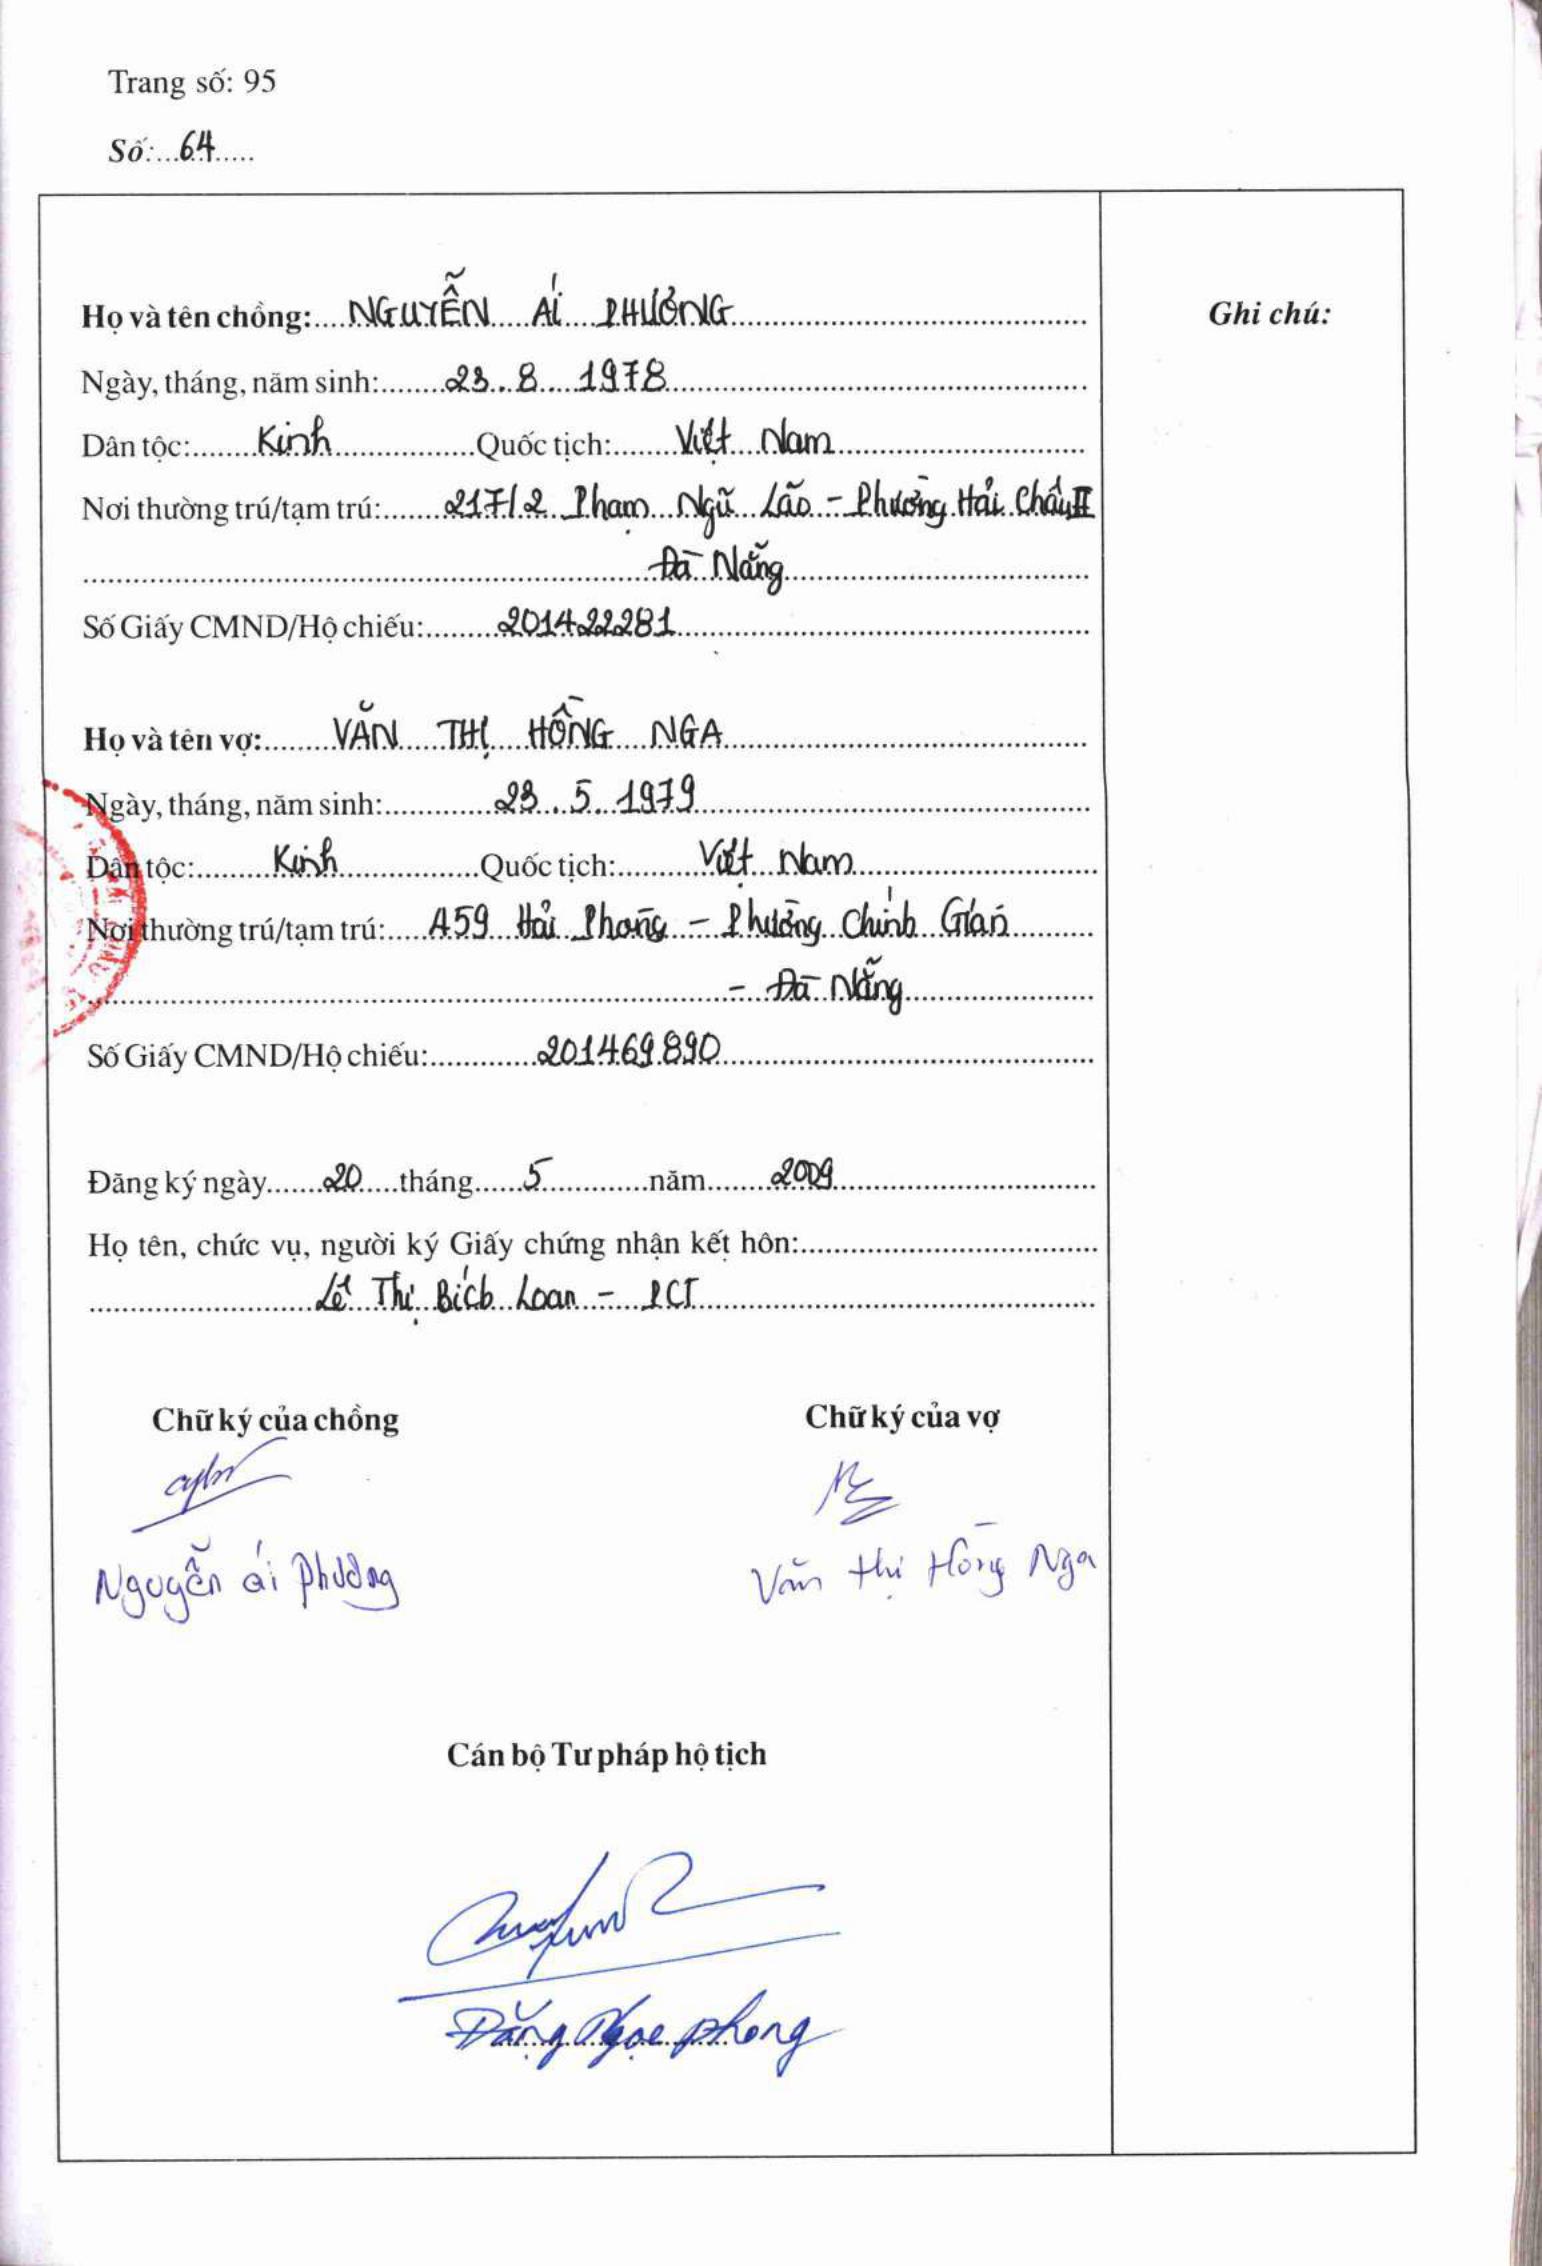 Trang số: 95
Số:...64.....
Họ và tên chồng: NGUYỄN ÁI PHƯƠNG
Ghi chú:
Ngày, tháng, năm sinh: 23.8.1978
Dân tộc: Kinh Quốc tịch: Việt Nam
Nơi thường trú/tạm trú: 217/2 Phạm Ngũ Lão - Phường Hải Châu II
Đà Nẵng
Số Giấy CMND/Hộ chiếu: 201422281
Họ và tên vợ: VĂN THỊ HỒNG NGA
Ngày, tháng, năm sinh: 23.5.1979
Dân tộc: Kinh Quốc tịch: Việt Nam
Nơi thường trú/tạm trú: A59 Hải Phòng - Phường Chính Gián
- Đà Nẵng
Số Giấy CMND/Hộ chiếu: 201469890
Đăng ký ngày 20 tháng 5 năm 2009
Họ tên, chức vụ, người ký Giấy chứng nhận kết hôn:
Lê Thị Bích Loan - PCT
Chữ ký của chồng Chữ ký của vợ
Nguyễn ái Phương Văn thị Hồng Nga
Cán bộ Tư pháp hộ tịch
Đặng Ngọc Phong